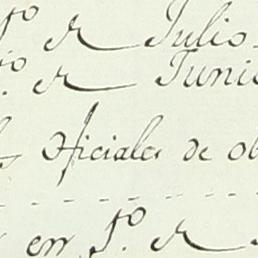 1º de Julio
1º de Junio
Oficiales de ob
en 1º de